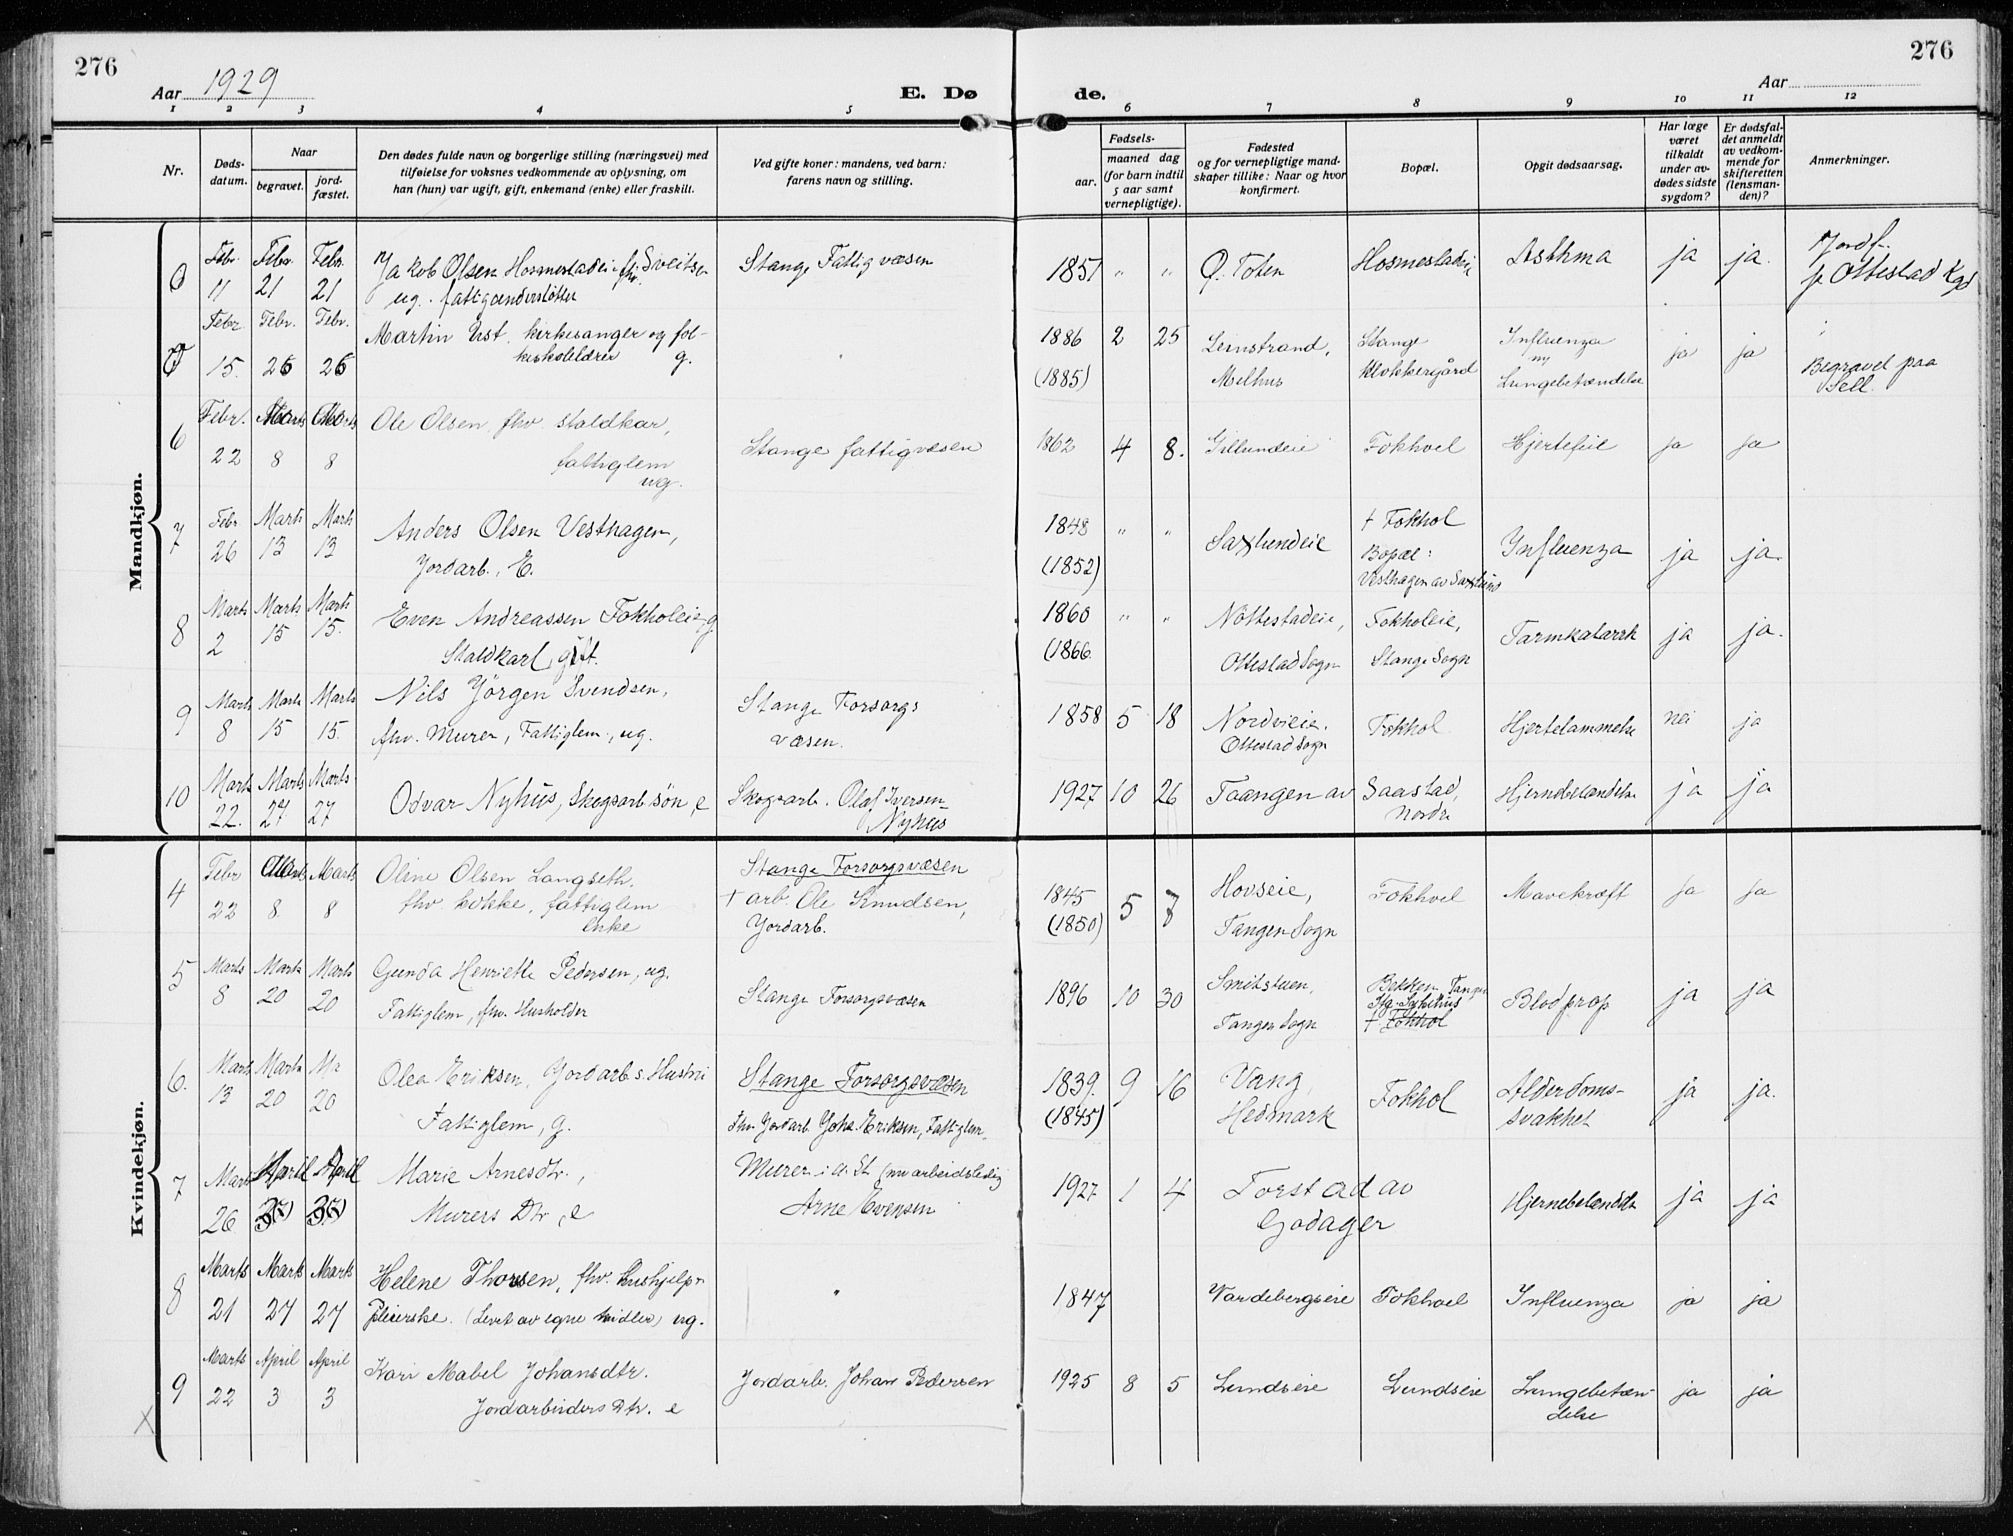 276
276
Aar 1929
E. Dø
de.
Aar
1 2 3 4 5 6 7 8 9 10 11 12
Nr.
Døds-
datum.
Naar
begravet.
jord-
fæstet.
Den dødes fulde navn og borgerlige stilling (næringsvei) med
tilføielse for voksnes vedkommende av oplysning, om
han (hun) var ugift, gift, enkemand (enke) eller fraskilt.
Ved gifte koner: mandens, ved barn:
farens navn og stilling.
Fødsels-
aar.
maaned dag
(for barn indtil
5 aar samt
vernepligtige).
Fødested
og for vernepligtige mand-
skaper tillike: Naar og hvor
konfirmert.
Bopæl.
Opgit dødsaarsag.
Har læge
været
tilkaldt
under av-
dødes sidste
sygdom?
Er dødsfal-
det anmeldt
av vedkom-
mende for
skifteretten
(lensman-
den)?
Anmerkninger.
Mandkjøn.
Febr. Febr. Febr. Jakob Olsen Hosmestadeie fhv. Sveitser Stange Fattigvæsen 1851 " " Ø. Toten Hosmestadeie Asthma ja ja. Jordf.
11 21 21 ug. fattigunderstøttet p. Ottestad Kgd
Febr. Febr. Febr. Martin Ust. kirkesanger og fol- " 1886 2 25 Leinstrand, Stange Influenza ja ja
15. 26 26 keskolelærer g. (1885) Melhus Klokkergård Lungebetændelse Begravet paa
Sell.
6 Febr. Marts Marts Ole Olsen fhv. staldkar, Stange fattigvæsen 1862 4 8. Gillundeie Fokhoel Hjertefeil ja ja
22 8 8 fattiglem
ug.
7 Febr Marts Marts Anders Olsen Vesthagen, 1848 " " Saxlundeie † Fokhol Influenza ja ja.
26 13 13 Jordarb., E. (1852) Bopæl:
Vesthagen av Saxlund
8 Marts Marts Marts Even Andreassen Fokholeie, g 1860 " " Nøttestadeie, Fokholeie, Tarmkatarrh ja ja.
2 15 15. Staldkarl, gift. (1866 Ottestad Sogn Stange Sogn
9 Marts Marts Marts Nils Jörgen Svendsen, Stange Forsorgs 1858 5 18 Nordvieie. Fokhol Hjertelammelse nei ja
8 15 15. fhv. Murer, Fattiglem, ug. væsen. Ottestad Sogn
10 Marts Marts Marts Odvar Nyhus, Skogsarb. sön, e Skogsarb. Olaf Iversen 1927 10 26 Taangen av Saastad, Hjernebetændelse ja ja
22. 27 27 Nyhus Nordre
Kvindekjøn.
4 Febr Marts Marts Oline Olsen Langseth. Stange Forsorgsvæsen 1845 5 7 Hovseie, Fokhoel Mavekræft ja ja
22 8 8 fhv. kokke, fattiglem † arb. Ole Knudsen, (1850) Tangen Sogn
Enke Jordarb.
5 Marts Marts Marts Gunda Henriette Pedersen, ug. Stange Forsorgsvæsen 1896 10 30 Smitstuen, Bekken Tangen Blodprop ja ja
8 20 20 Fattiglem, fhv. Husholder Tangen Sogn Stg. Sykehus
† Fokhol
6. Marts Marts Mr Olea Eriksen, Jordarb.s Hustru Stange Forsorgsvæsen 1839. 9 16 Vang, Fokhol Alderdoms- ja ja.
13 20 20 Fattiglem, g. Fhv. Jordarb. Johs. Eriksen, Fattiglem. (1845) Hedmark svakhet
7 Marts April April Marie Arnesdtr., Murer i a. St (nu arbeidsledig 1927 1 4 Torstad av Hjernebetændelse ja ja
26 Murers Dtr, e Arne Evensen Godager
8 Marts Marts Marts Helene Thorsen, fhv. hushjelp " 1847 Vardebergseie Fokhoel Influenza ja ja
21 27 27 Pleierske. (Levet av egne midler) ug.
9 Marts April April Kari Mabel Johansdtr. Jordarb. Johan Pedersen 1925 8 5 Lundseie Lundseie Lungebetæn- ja ja
22 3 3 Jordarbeiders Dtr. e delse
X